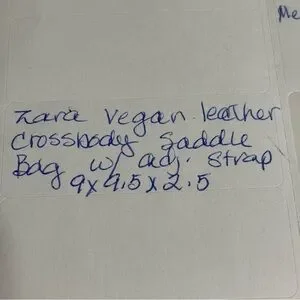 Me
Zara vegan leather
crossbody saddle
Bag w/ adj. strap
9x9.5x2.5